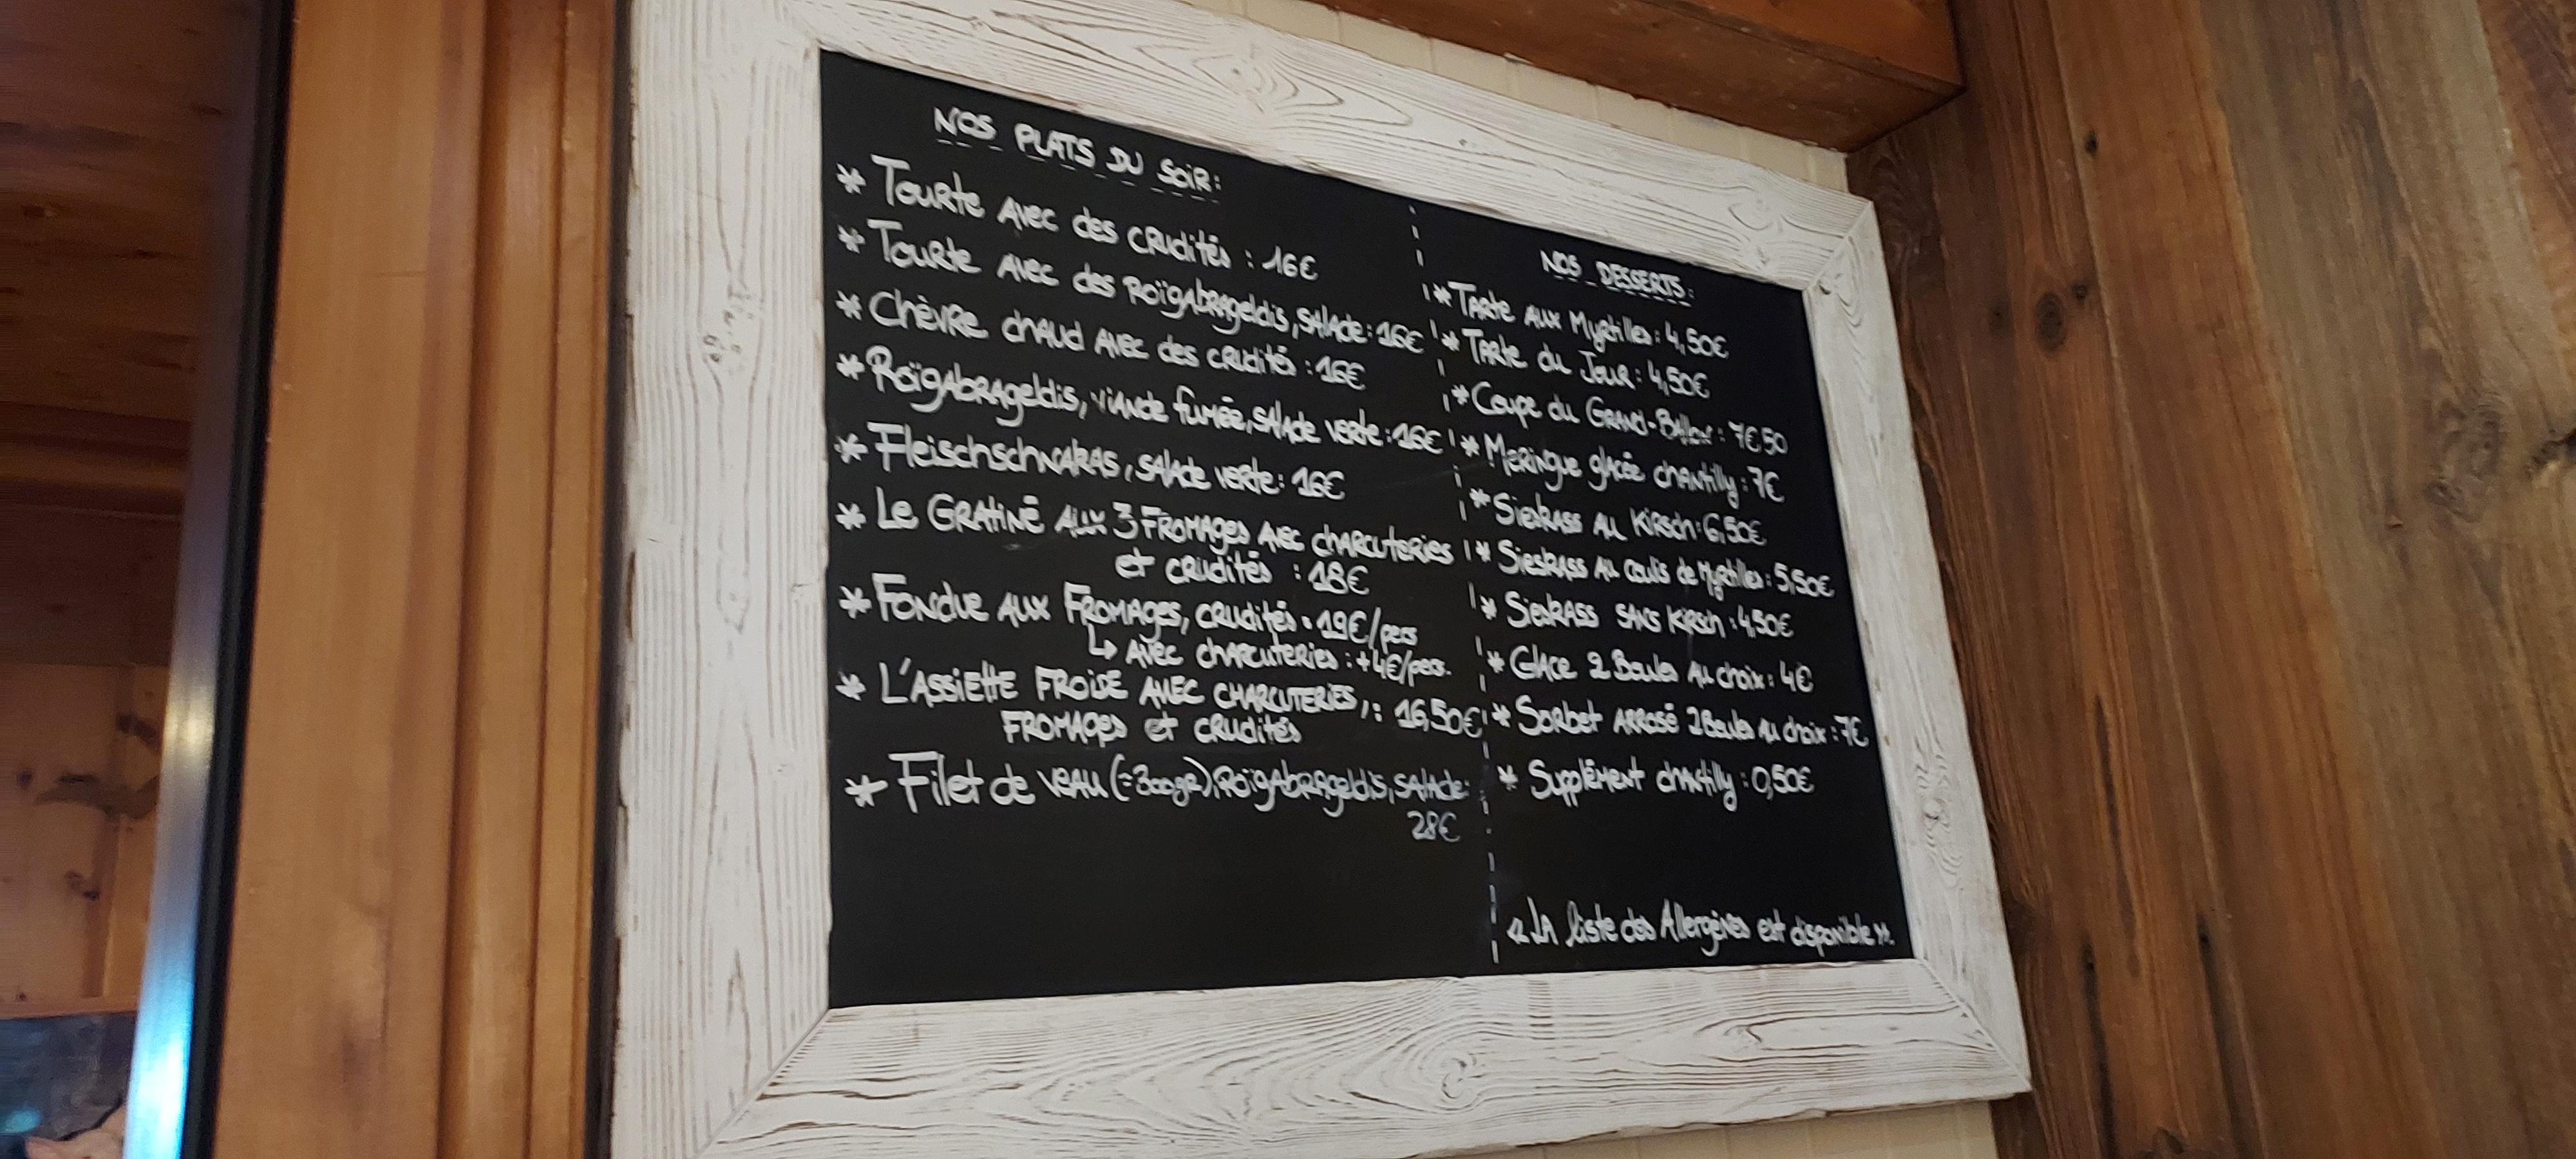 NOS PLATS DU SOIR:
* Tourte avec des crudités : 16€
* Tourte avec des Roïgabrageldis, salade : 16€
* Chèvre chaud avec des crudités : 16€
* Roïgabrageldis, viande fumée, salade verte : 16€
* Fleischschnakas, salade verte : 16€
* Le Gratiné aux 3 Fromages avec charcuteries
et crudités : 18€
* Fondue aux Fromages, crudités : 19€/pers
↳ Avec charcuteries : +4€/pers.
* L'ASSIETTE FROIDE AVEC CHARCUTERIES, : 16,50€
FROMAGES et crudités
* Filet de veau (=300gr), Roïgabrageldis, salade:
28€
NOS DESSERTS:
* Tarte aux Myrtilles : 4,50€
* Tarte du Jour : 4,50€
* Coupe du Grand-Ballon : 7€50
* Meringue glacée chantilly : 7€
* Sieskass au Kirsch : 6,50€
* Sieskass au coulis de Myrtilles : 5,50€
* Sieskass sans Kirsch : 4,50€
* Glace 2 Boules au choix : 4€
* Sorbet arrosé 2 Boules au choix : 7€
* Supplément chantilly : 0,50€
« La liste des Allergènes est disponible »